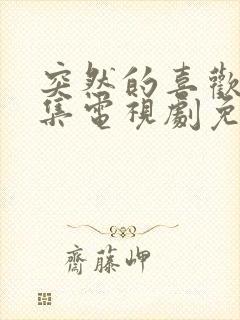 突然的喜歡
集電視劇免
齋藤岬